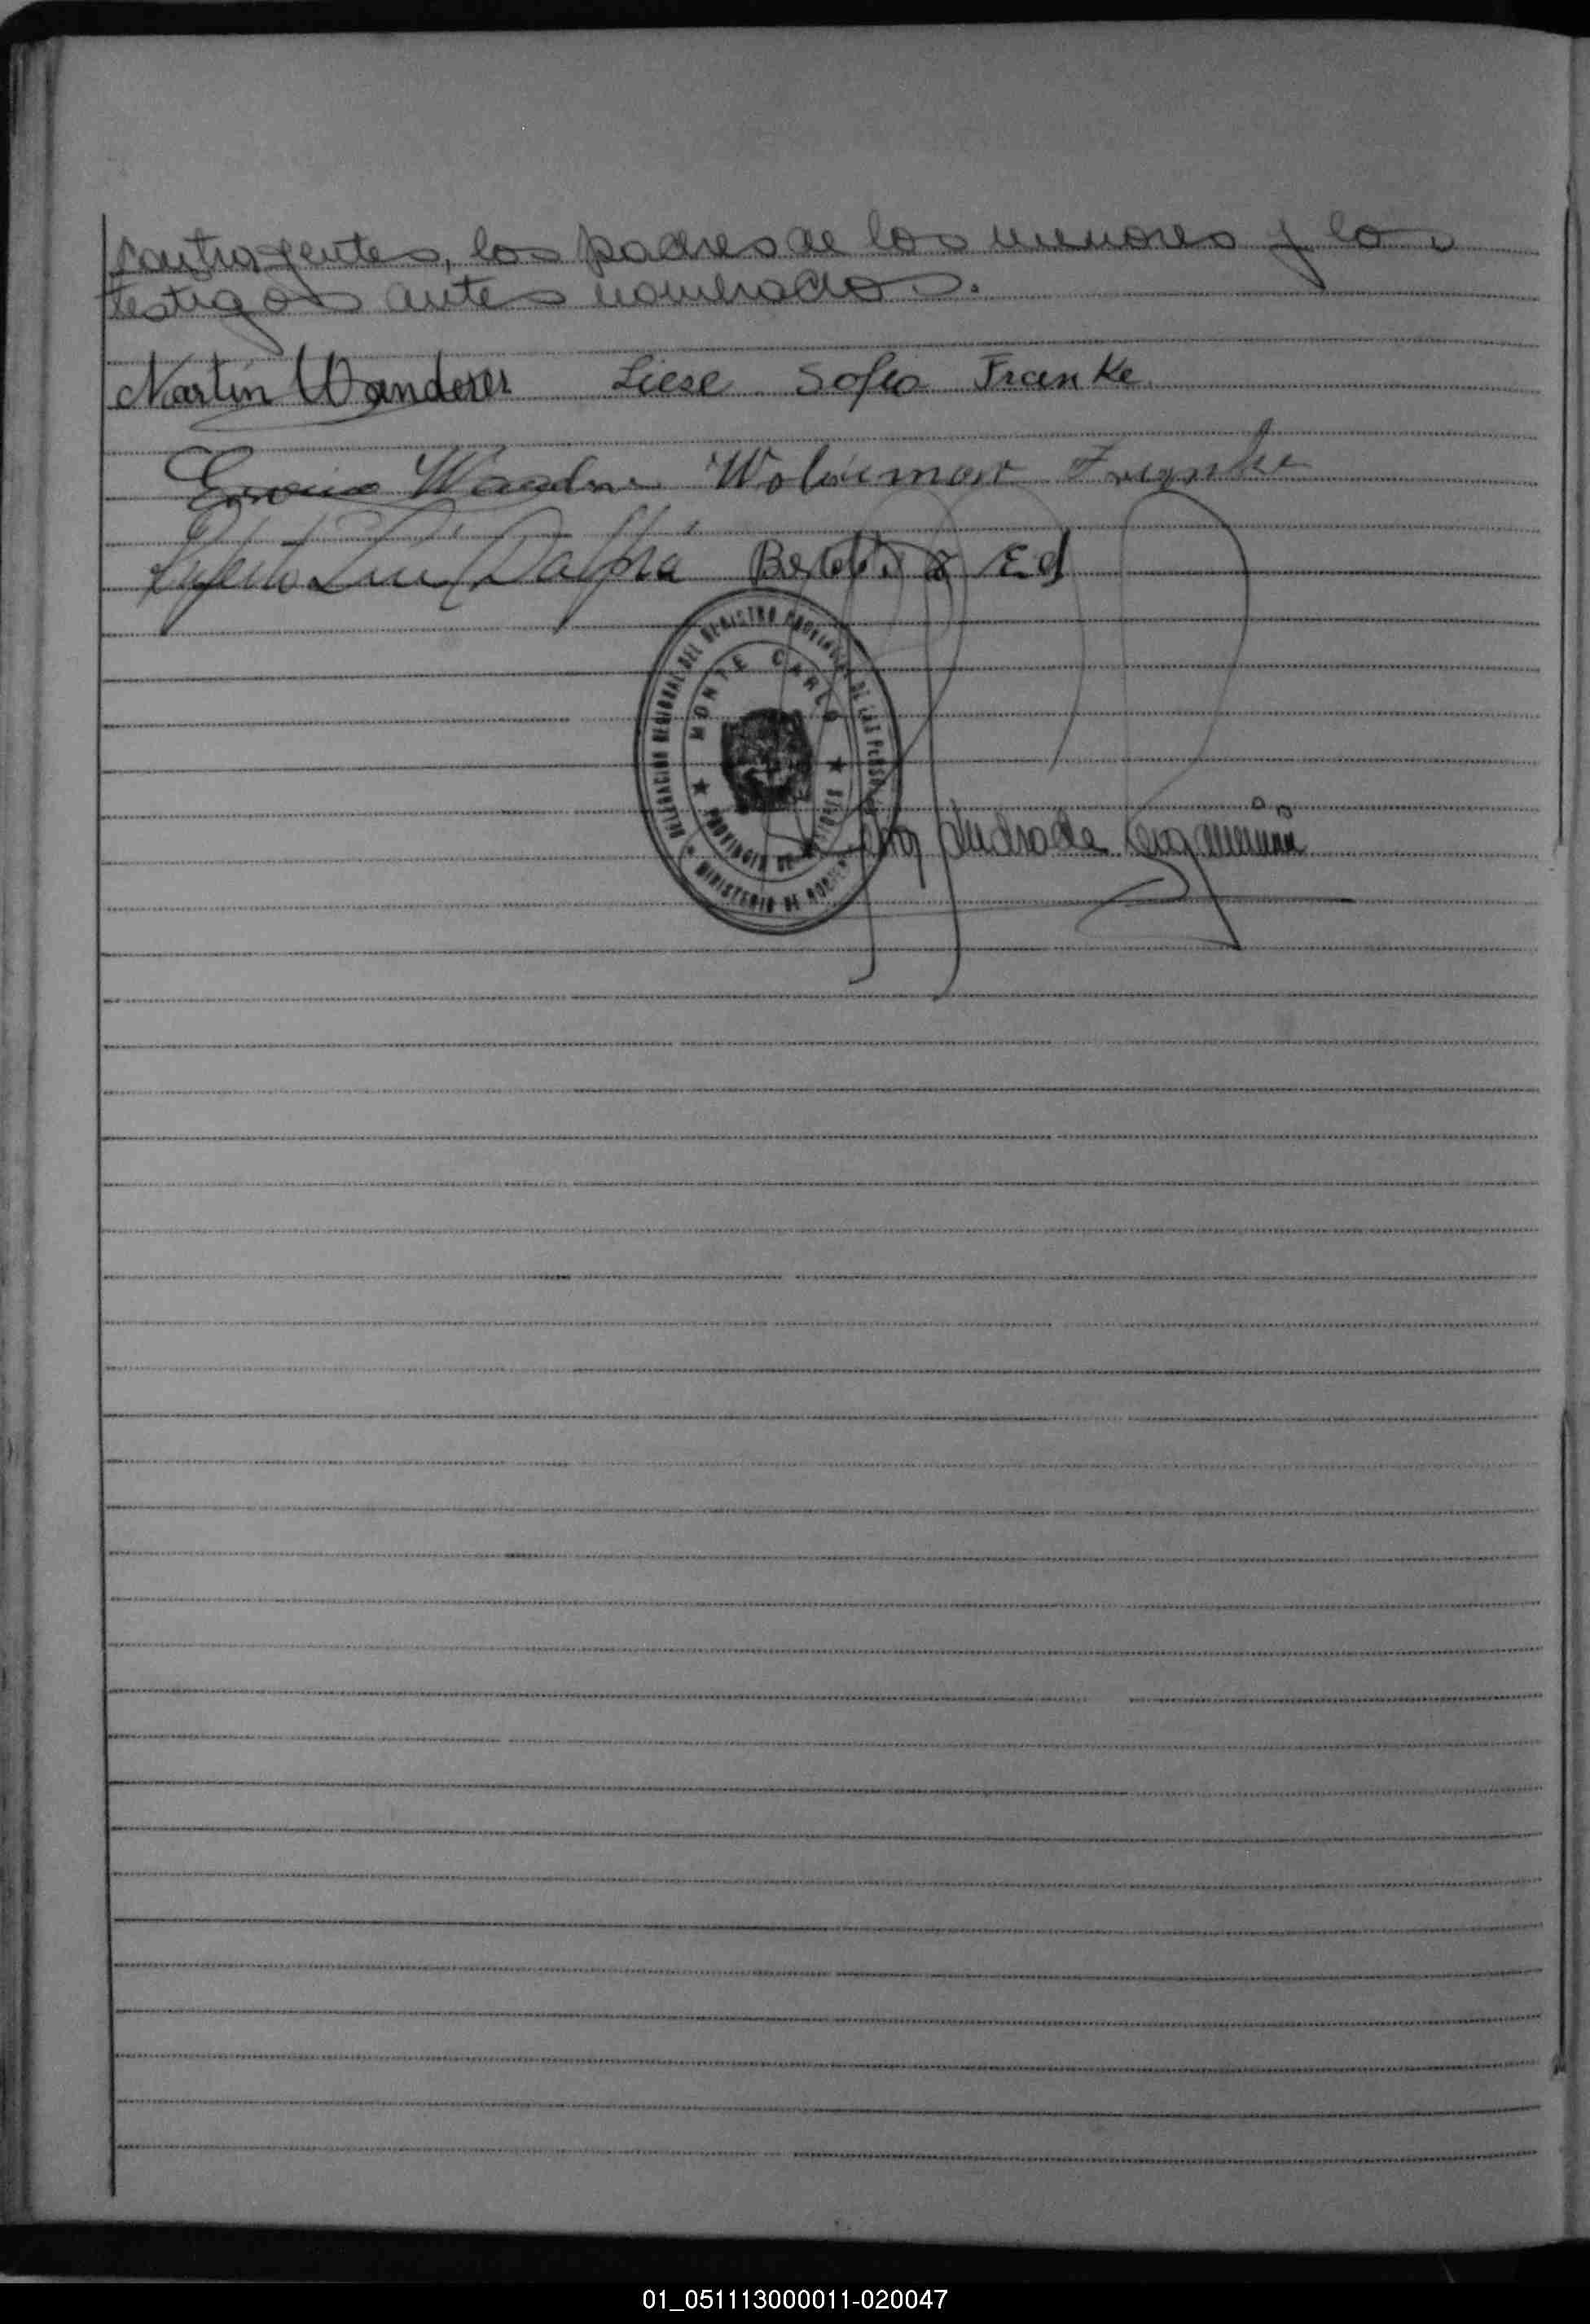 contrayentes, los padres de los menores y los
testigos antes nombrados.
Martin Wanderer Liese Sofia Franke
Erwin Wanderer Woldemar Franke
Luis Dalprá
DELEGACION REGIONAL DEL REGISTRO PROVINCIAL DE LAS PERSONAS
MONTE CARLO
PROVINCIA DE MISIONES
MINISTERIO DE GOBIERNO
Andrade
01_051113000011-020047